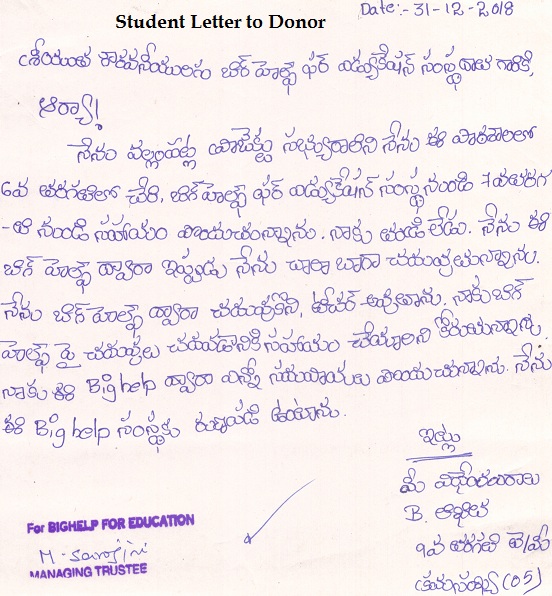 Date:- 31-12-2018
Student Letter to Donor
శ్రీయుత గౌరవనీయులగు బిగ్ హెల్ప్ ఫర్ ఎడ్యుకేషన్ సంస్థ వారి గారికి,
ఆర్యా!
నేను పల్లంపట్ల ప్రాజెక్టు సభ్యురాలిని నేను ఈ పాఠశాలలో
6వ తరగతిలో చేరి, బిగ్ హెల్ప్ ఫర్ ఎడ్యుకేషన్ సంస్థ నుండి 7వ తరగ
-తి నుండి సహాయం పొందుచున్నాను. నాకు తండ్రి లేడు. నేను ఈ
బిగ్ హెల్ప్ ద్వారా ఇప్పుడు నేను చాలా బాగా చదువుతున్నాను.
నేను బిగ్ హెల్ప్ ద్వారా చదువుకొని, టీచర్ అవుతాను. నాకు బిగ్
హెల్ప్ పై చదువులు చదవడానికి సహాయం చేయాలని కోరుచున్నాను.
నాకు ఈ Big help ద్వారా ఎన్నో సదుపాయలు పొందుచున్నాను. నేను
ఈ Big help సంస్థకు రుణపడి ఉంటాను.
ఇట్లు
మీ విధేయురాలు
B. అఖిల
9వ తరగతి తె/మీ
క్రమసంఖ్య (05)
For BIGHELP FOR EDUCATION
M. Sarojini
MANAGING TRUSTEE